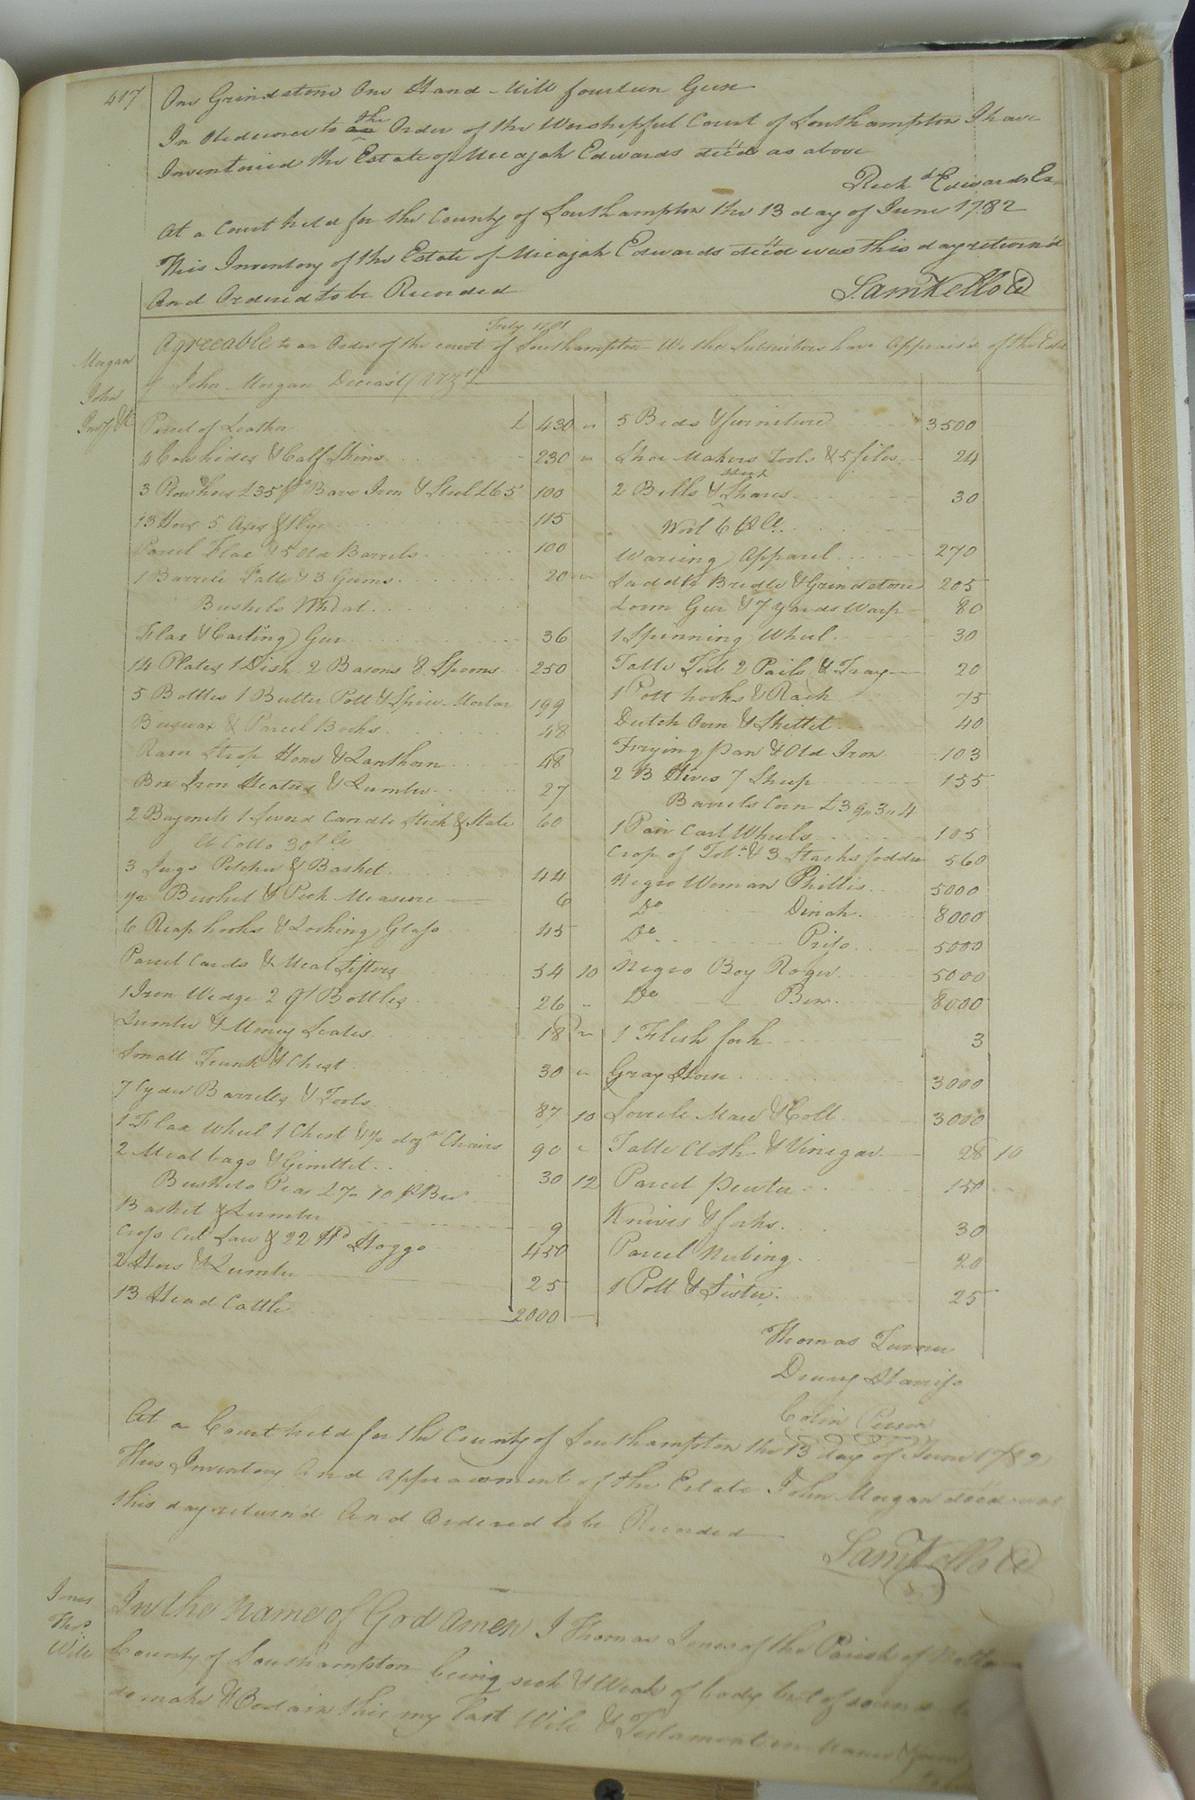 417
One Grindstone One Hand-Mill fourteen Geese
In Obedience to the Order of the Worshipful Court of Southampton I have
Inventoried the Estate of Micajah Edwards dec'd as above
Rich'd Edwards Ex
At a Court held for the County of Southampton the 13 day of June 1782
This Inventory of the Estate of Micajah Edwards dec'd was this day return'd
And Ordered to be Recorded
Sam Kello
July 1781
Agreeable to an Order of the court of Southampton We the Subscribers have Appraisd of the Esta
of John Morgan Deceas'd
Morgan
John
Parcel of Leather £ 430 "
4 Cowhides & Calf Skins 230 "
3 Plow hoes £35 Barr Iron & Steel £65 100
13 Hoes 5 Axes & 115
Parcel Flax & 5 Old Barrels 100
1 Barrell Salt & 3 Gums 20
Bushels Wheat
Flax & Carting Gear 36
14 Plates 1 Dish 2 Basons 8 Spoons 250
5 Bottles 1 Butter Pott & Spice Mortar 199
Beeswax & Parcel Books 48
Razor Strop Hone & Lanthorn 48
Box Iron Heaters & Lumber 27
2 Bayonets 1 Sword Candle Stick & Slate 60
3 Jugs Pitcher & Basket 44
½ Bushel & Peck Measure 6
6 Reap hooks & Looking Glass 45
Parcel Cards & Meal Sifters 54 10
1 Iron Wedge 2 qt Bottles 26
Lumber & Money Scales 18
Small Trunk & Chest 30
7 Cyder Barrells & Tools 87 10
1 Flax Wheel 1 Chest & ½ doz'n Chairs 90
2 Meal bags & Gimblet 30 12
Bushels Peas
Basket & Lumber 9
Cross Cut Saw & 22 H'd Hoggs 450
2 & Lumber 25
13 Head Cattle 2000
5 Beds & furniture 3500
Shoe Makers Tools & 5 files 24
2 Bells & Shears 30
Wool
Waring Apparel 270
Saddle Bridle & Grindstone 205
Loom Gear & 7 yards Warp 80
1 Spinning Wheel 30
Table Tub 2 Pails & Tray 20
1 Pott hooks & Rack 75
Dutch Oven & Skillet 40
Frying pan & Old Iron 103
2 B Hives 7 Sheep 155
Barrels Corn £39,3,,4
1 Pair Cart Wheels 105
Crop of Tob'o & 3 Stacks fodder 560
Negro Woman Phillis 5000
Do Dinah 8000
Do Priss 5000
Negro Boy Roger 5000
Do Ben 8000
1 Flesh fork 3
Gray Horse 3000
Sorrele Mare & Colt 3000
Table Cloth & Vinegar 28 10
Parcel pewter 150
Knives & forks 30
Parcel 20
1 Pott & Sifter 25
Thomas Turner
Drury
At a Court held for the County of Southampton the 13 day of June 1782
This Inventory And Appraisment of the Estate John Morgan deced was
this day return'd And Ordered to be Recorded
Sam Kello
Jones
Tho's
Will
In the Name of God Amen I Thomas Jones of the Parish of
County of Southampton being sick & Weak of body but of sound
do make & Ordain this my last Will & Testament in